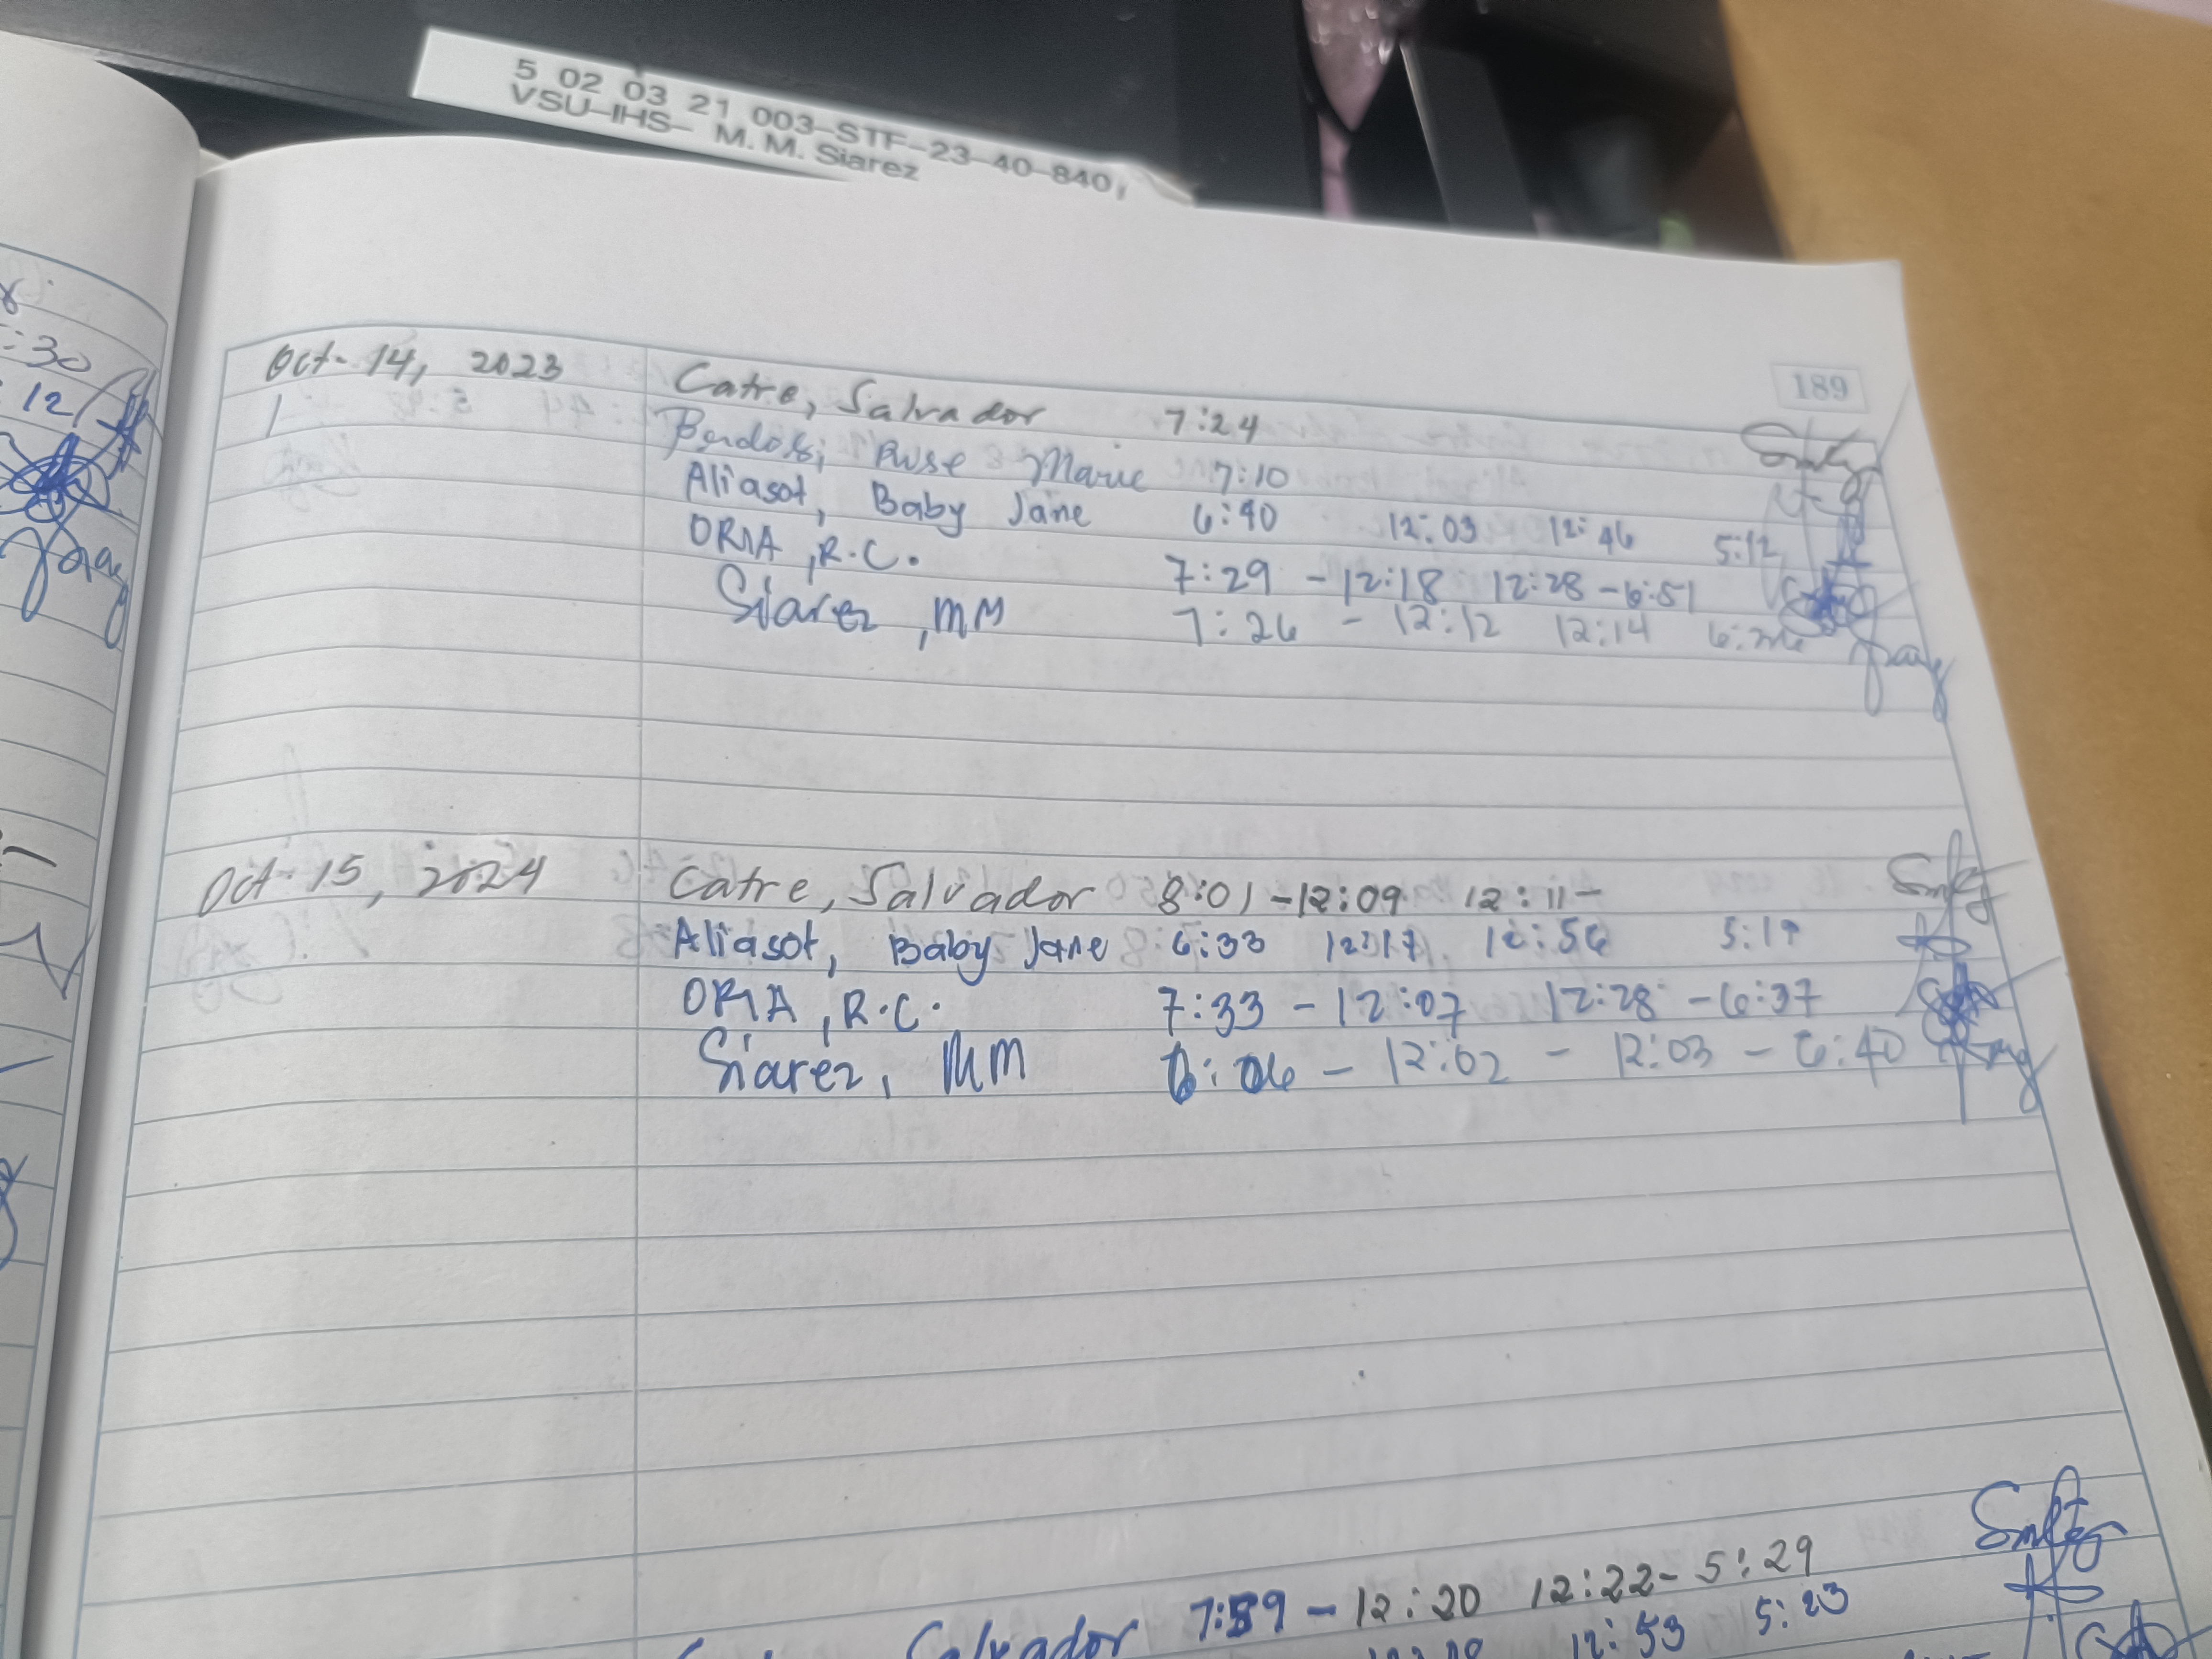 5 02 03 21 003-STF-23-40-840,
VSU-IHS- M. M. Siarez
189
:30
12
Oct- 14, 2023 Catre, Salvador 7:24
Rose Marie 7:10
Aliasot, Baby Jane 6:40 12:03 12:46 5:12
ORIA, R.C. 7:29 - 12:18 12:28 - 6:51
Siarez, MM 7:26 - 12:12 12:14
Oct- 15, 2024 Catre, Salvador 8:01 - 12:09 12:11 -
Aliasot, Baby Jane 6:33 12:17 12:56 5:19
ORIA, R.C. 7:33 - 12:07 12:28 - 6:37
Siarez, MM 12:02 - 12:03 - 6:40
Salvador 7:59 - 12:20 12:22 - 5:29
12:53 5:23